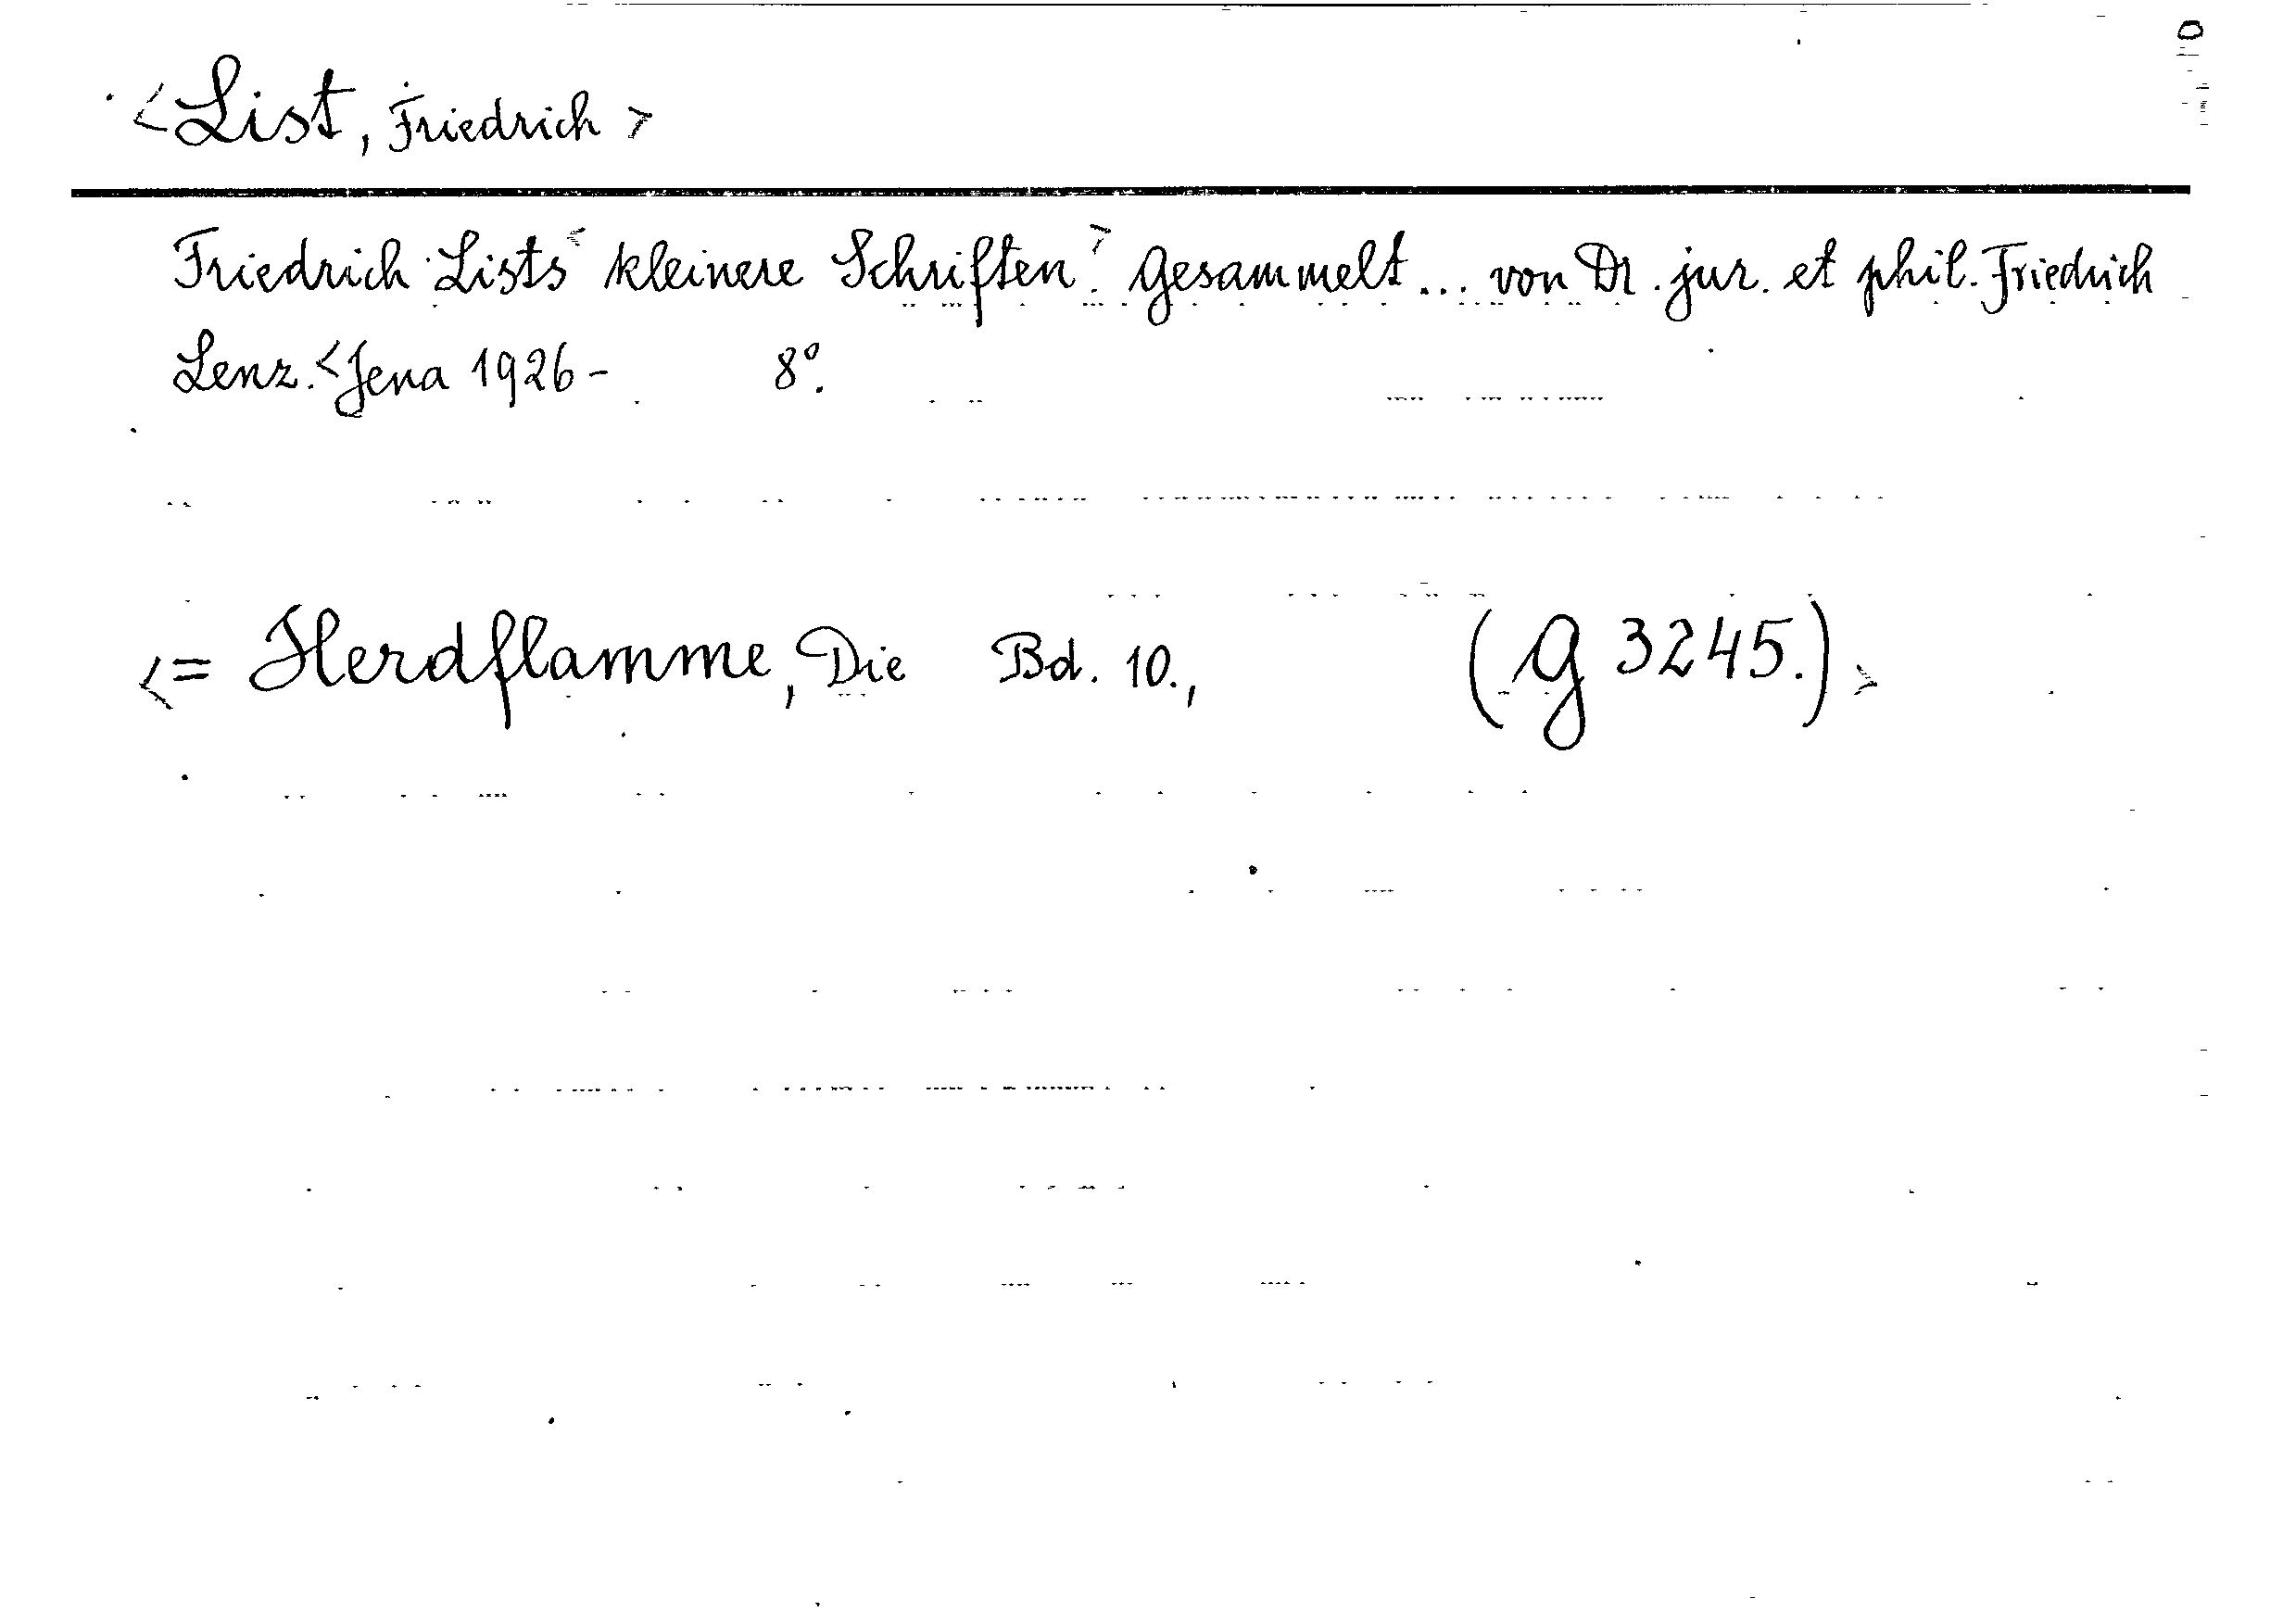 <List, Friedrich>
Friedrich Lists < kleinere Schriften. > Gesammelt... von Dr. jur. et phil. Friedrich
Lenz. <Jena 1926- 8°.
<= Herdflamme, Die Bd. 10., (G 3245.)>